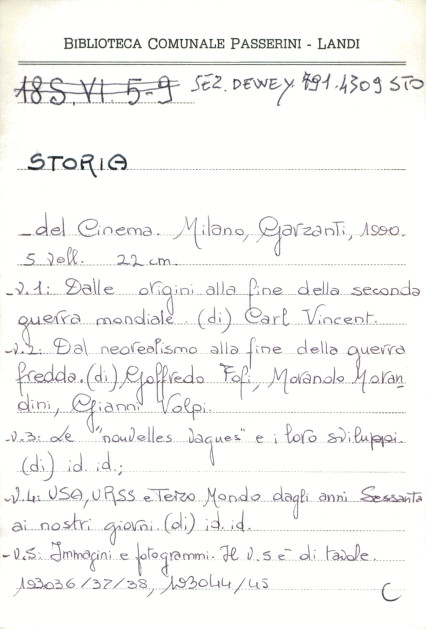 BIBLIOTECA COMUNALE PASSERINI - LANDI
18S.VI.5-9 SEZ. DEWEY 791.4309 STO
STORIA
_del Cinema. Milano, Garzanti, 1990.
5 voll. 22 cm.
-v.1: Dalle origini alla fine della seconda
guerra mondiale. (di) Carl Vincent.
-v.2: Dal neorealismo alla fine della guerra
fredda. (di) Goffredo Fofi, Morando Moran
dini, Gianni Volpi.
-v.3: Le "nouvelles vagues" e i loro sviluppi.
(di) id. id.;
-v.4: USA, URSS e Terzo Mondo dagli anni Sessanta
ai nostri giorni. (di) id. id.
-v.5: Immagini e fotogrammi. Il v.5 è di tavole.
193036/37/38, 193044/45
C